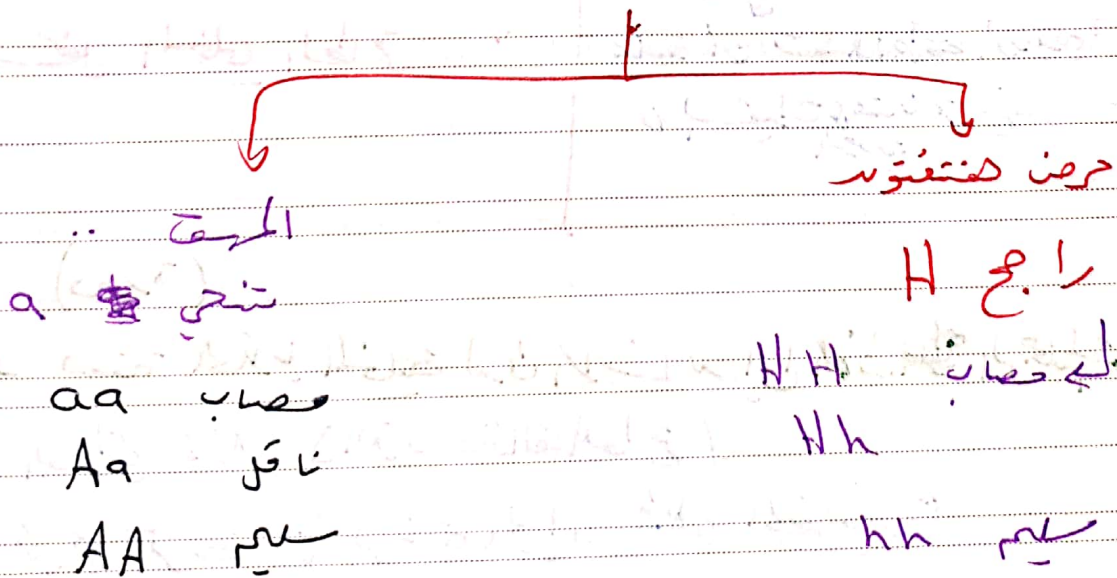 مرض هنتغتون
راجح H
مصاب HH
Hh
سليم hh
المهق
تنحي a
مصاب aa
ناقل Aa
سليم AA